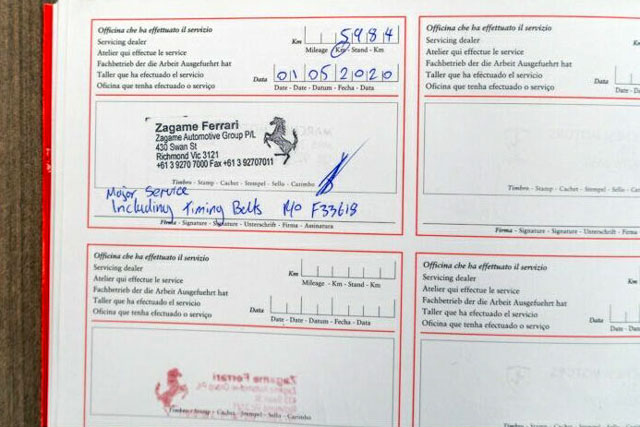 Officina che ha effettuato il servizio
Servicing dealer
Atelier qui effectue le service
Fachbetrieb der die Arbeit Ausgefuehrt hat
Taller que ha efectuado el servicio
Oficina que tenha efectuado o serviço
Km 5984
Mileage - Km - Stand - Km
Data 01052020
Date - Date - Datum - Fecha - Data
Zagame Ferrari
Zagame Automotive Group P/L
430 Swan St
Richmond Vic 3121
+61 3 9270 7000 Fax +61 3 92707011
Timbro - Stamp - Cachet - Stempel - Sello - Carimbo
Major Service
Including Timing Belts R/O F33618
Firma - Signature - Signature - Unterschrift - Firma - Assinatura
Officina che ha effettuato il servizio
Servicing dealer
Atelier qui effectue le service
Fachbetrieb der die Arbeit Ausgefuehrt hat
Taller que ha efectuado el servicio
Oficina que tenha efectuado o serviço
Timbro - Stamp - Cachet - Stempel - Sello - Carimbo
Firma - Signature - Signature - Unterschrift - Firma
Officina che ha effettuato il servizio
Servicing dealer
Atelier qui effectue le service
Fachbetrieb der die Arbeit Ausgefuehrt hat
Taller que ha efectuado el servicio
Oficina que tenha efectuado o serviço
Km
Mileage - Km - Stand - Km
Data
Date - Date - Datum - Fecha - Data
Zagame Ferrari
Zagame Automotive Group P/L
Timbro - Stamp - Cachet - Stempel - Sello - Carimbo
Officina che ha effettuato il servizio
Servicing dealer
Atelier qui effectue le service
Fachbetrieb der die Arbeit Ausgefuehrt hat
Taller que ha efectuado el servicio
Oficina que tenha efectuado o serviço
Timbro - Stamp - Cachet - Stempel - Sello